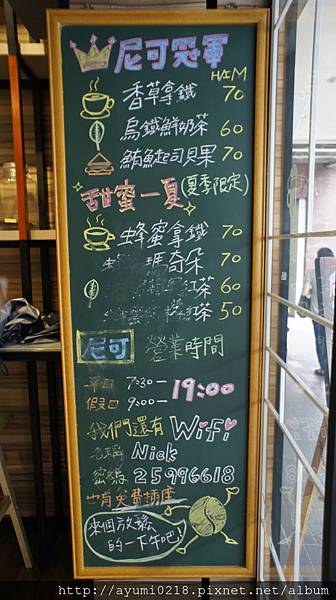 尼可冠軍
H&M
香草拿鐵 70
烏鐵鮮奶茶 60
鮪魚起司貝果 70
甜蜜一夏(夏季限定)
蜂蜜拿鐵 70
瑪奇朵 70
紅茶 60
紅茶 50
尼可 營業時間
平日 7:30—19:00
假日 9:00—
我們還有WiFi
名稱 Nick
密碼 25996618
也有免費插座
來個放鬆
的一下午吧
http://ayumi0218.pixnet.net/album